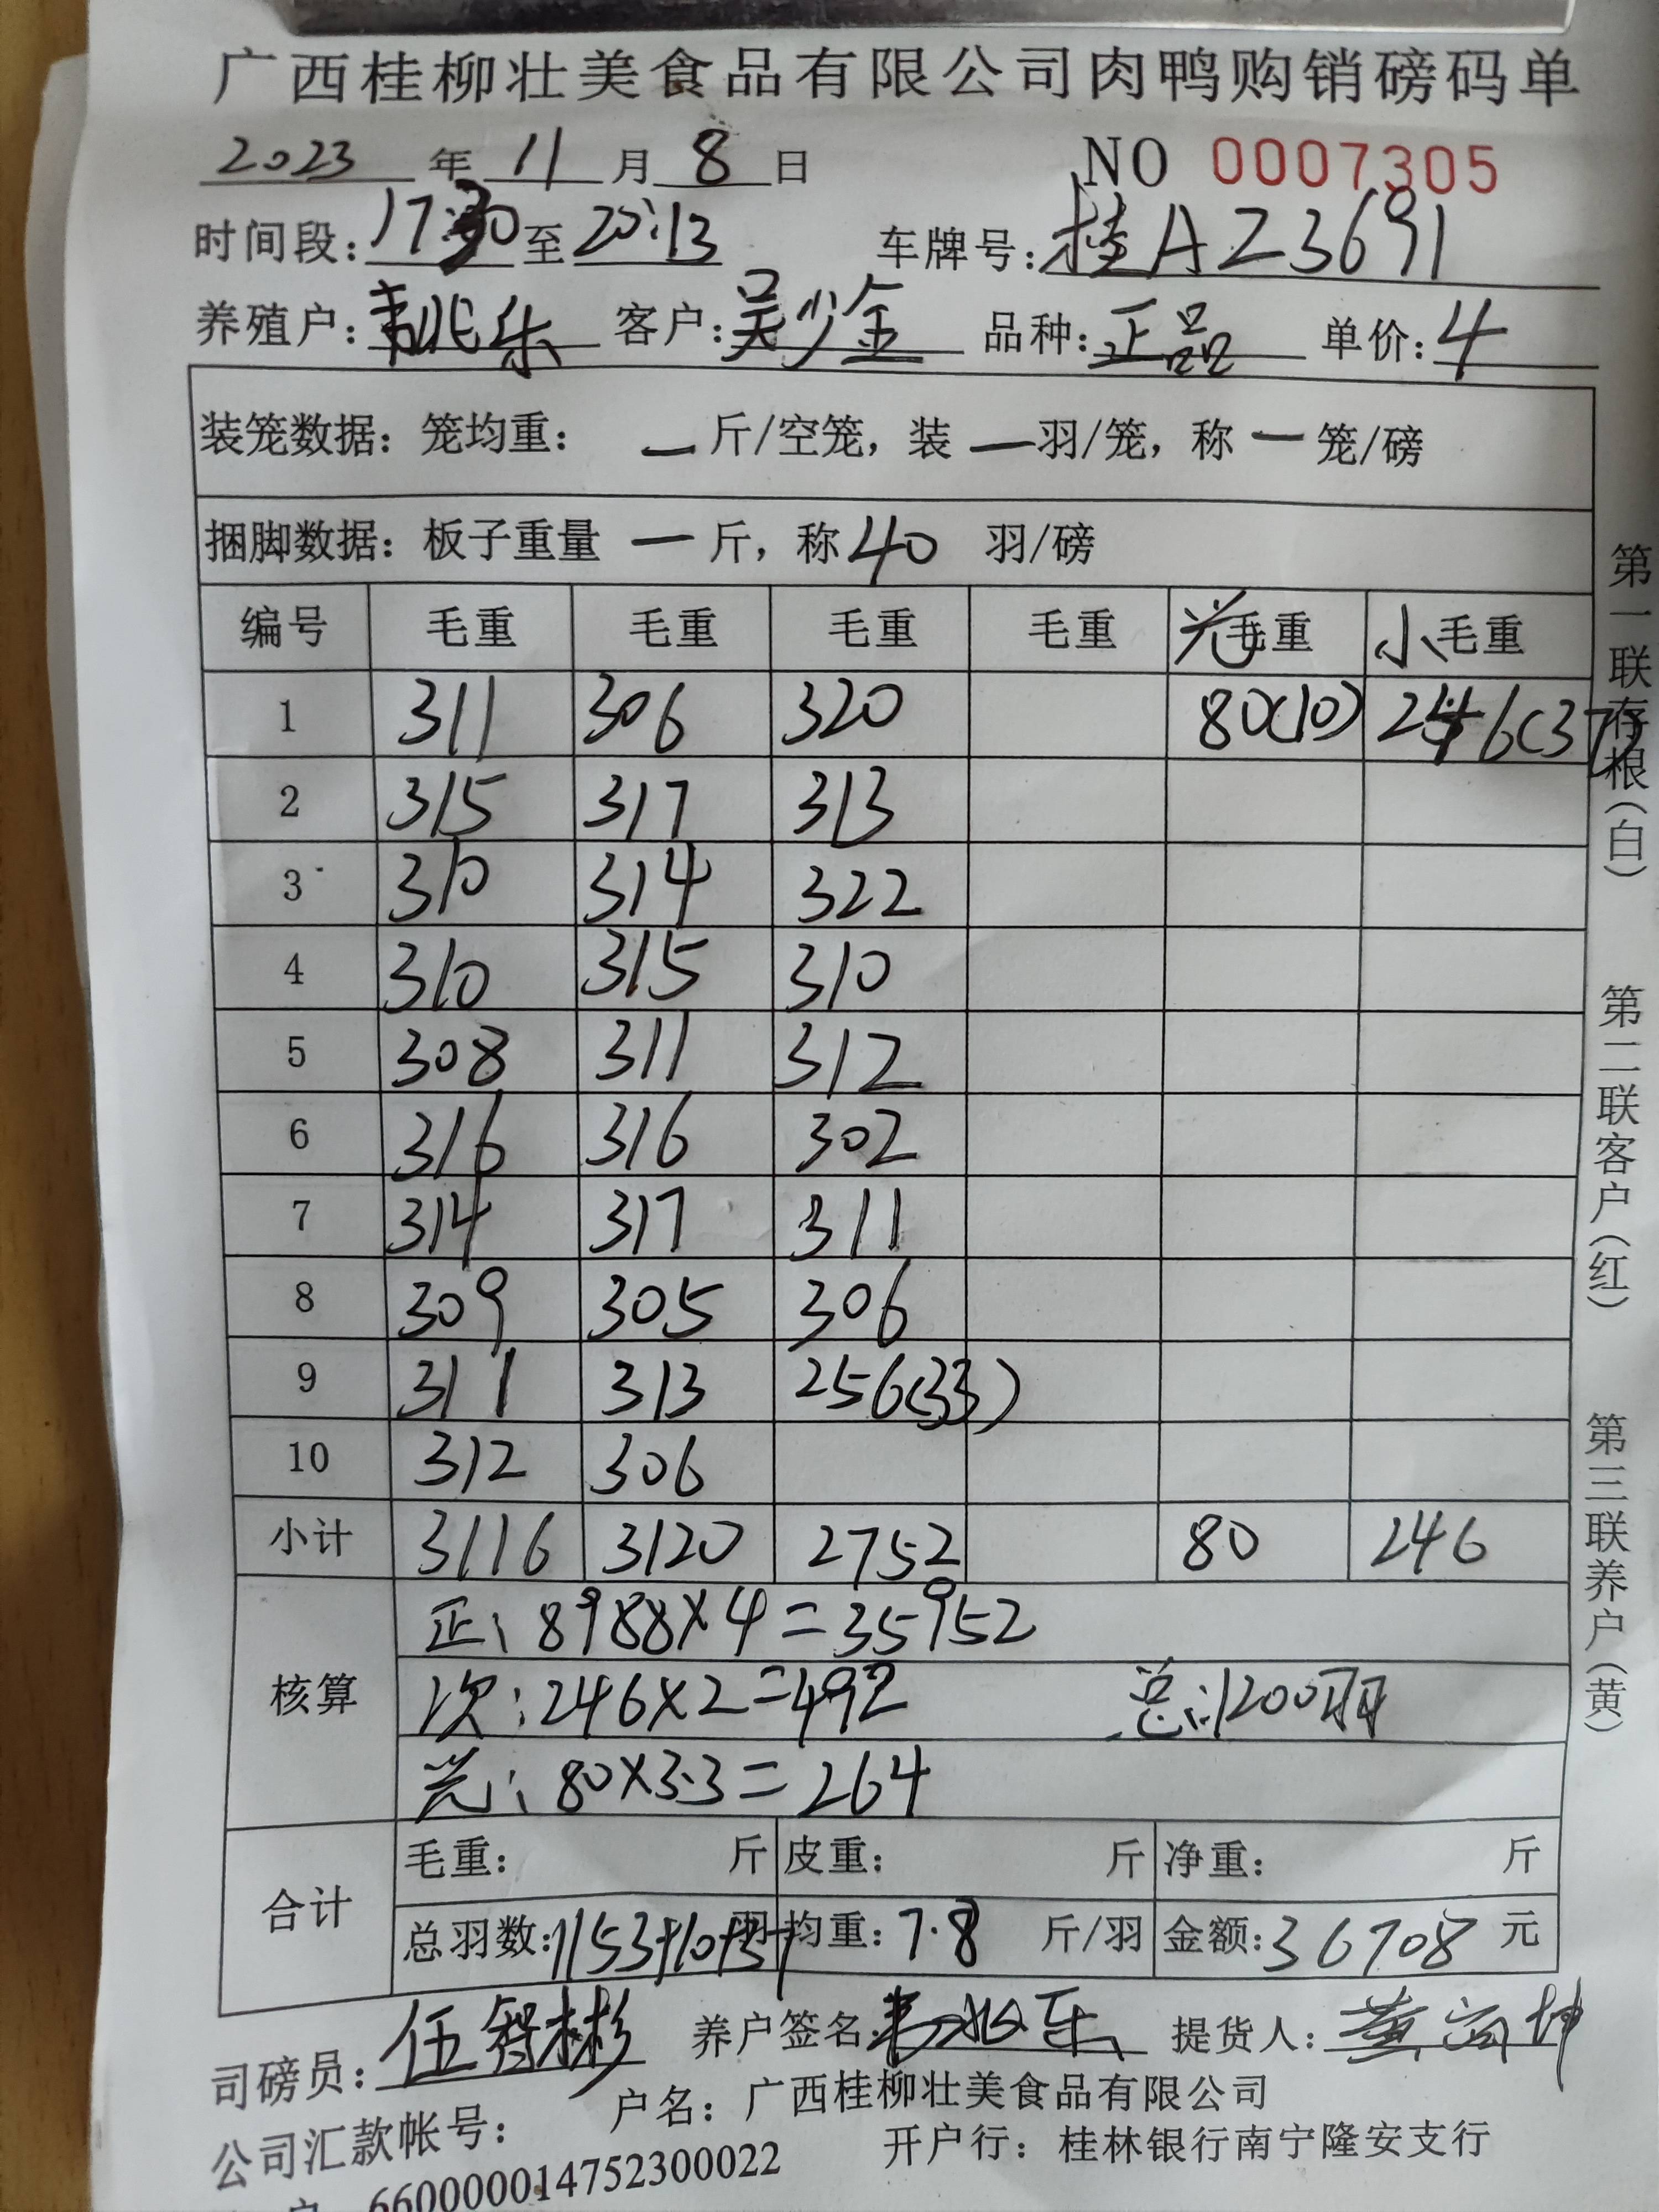 广西桂柳壮美食品有限公司肉鸭购销磅码单
2023 年 11 月 8 日 NO 0007305
时间段: 17:30 至 20:13 车牌号: 桂AZ3691
养殖户: 韦兆乐 客户: 吴少金 品种: 正品 单价: 4
装笼数据: 笼均重: 一 斤/空笼, 装 一 羽/笼, 称 一 笼/磅
捆脚数据: 板子重量 一 斤, 称 40 羽/磅
编号 毛重 毛重 毛重 毛重 光毛重 小毛重
1 311 306 320 80(10) 246(37)
2 315 317 313
3 310 314 322
4 310 315 310
5 308 311 312
6 316 316 302
7 314 317 311
8 309 305 306
9 311 313 256(33)
10 312 306
小计 3116 3120 2752 80 246
核算
正: 8988×4=35952
次: 246×2=492 总:1200羽
光: 80×3.3=264
合计
毛重: 斤 皮重: 斤 净重: 斤
总羽数: 1153+10+37 羽 均重: 7.8 斤/羽 金额: 36708 元
司磅员: 伍智彬 养户签名: 韦兆乐 提货人: 黄
公司汇款帐号: 户名: 广西桂柳壮美食品有限公司
户 660000014752300022 开户行: 桂林银行南宁隆安支行
第一联存根(白)
第二联客户(红)
第三联养户(黄)